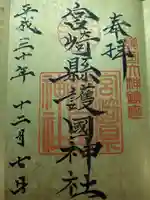 奉拝
宮崎縣護國神社
平成三十年 十二月七日